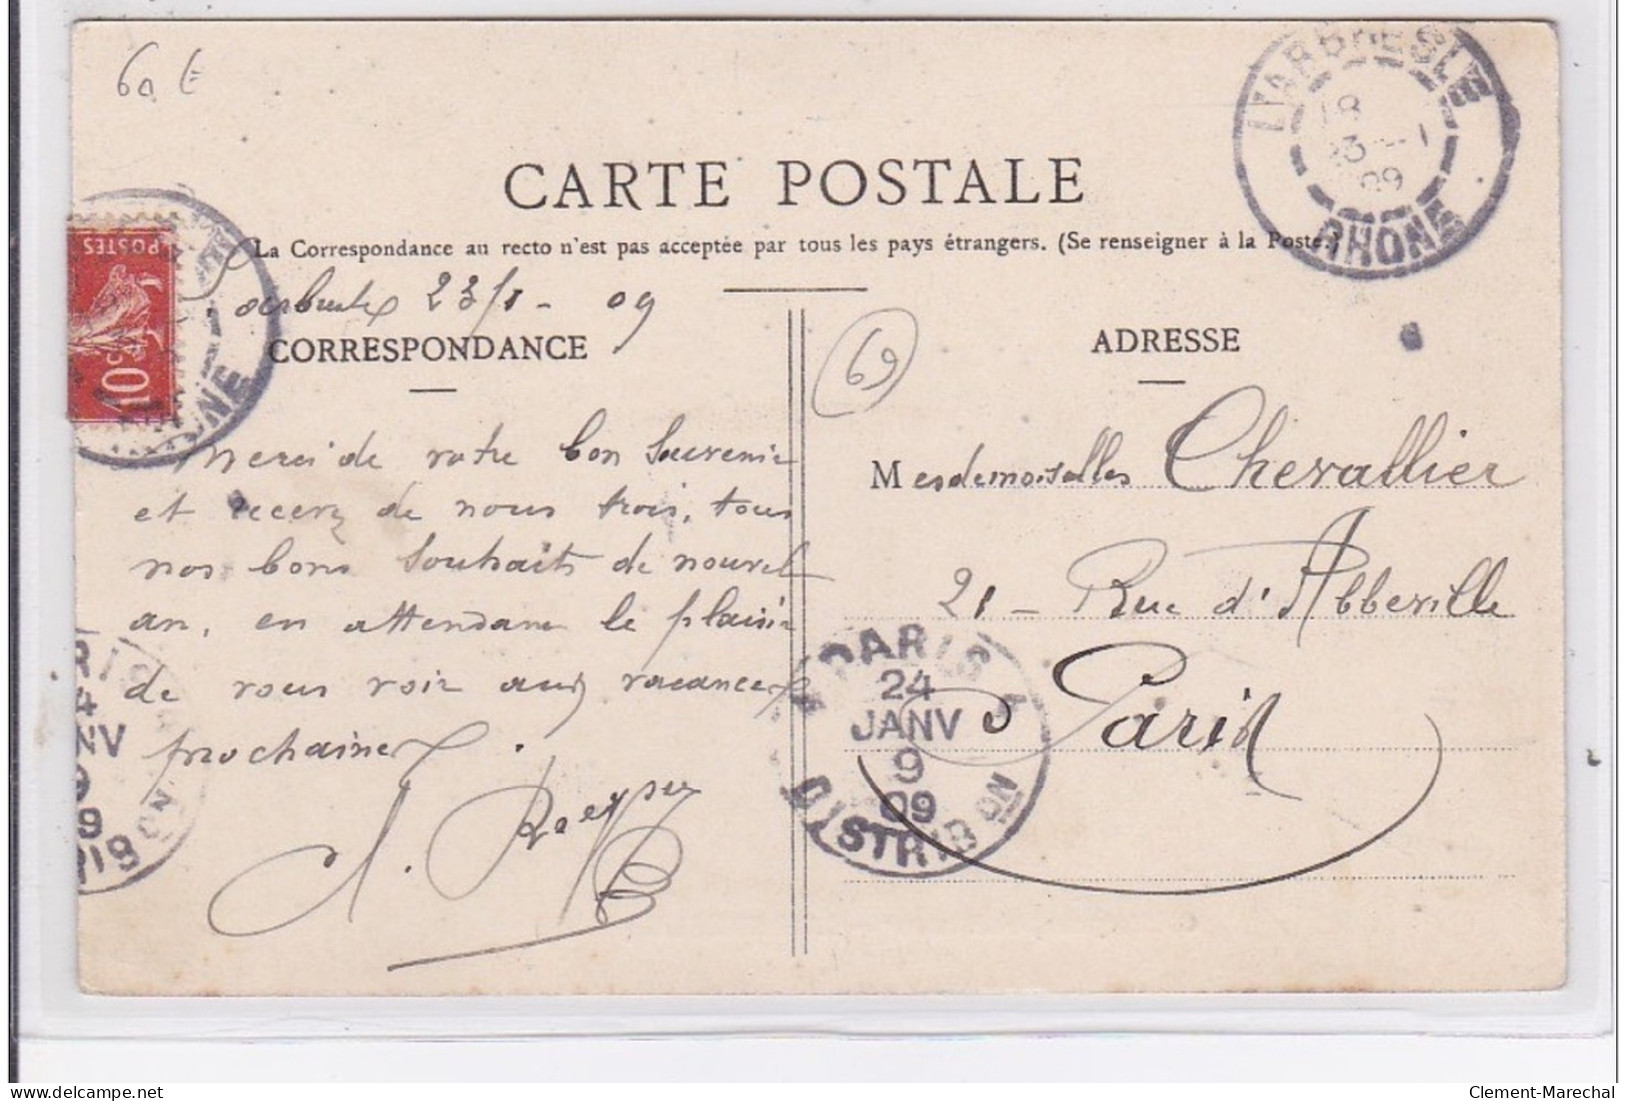 60 €
L'ARBRESLE
18
23 - 1
09
RHONE
CARTE POSTALE
La Correspondance au recto n'est pas acceptée par tous les pays étrangers. (Se renseigner à la Poste.)
POSTES
10c
RHONE
23/1 - 09
CORRESPONDANCE
69
ADRESSE
Merci de votre bon souvenir
et recevez de nous trois, tous
nos bons souhaits de nouvel
an, en attendant le plaisir
de vous voir aux vacances
prochaines.
Mesdemoiselles Chevallier
21 - Rue d'Abbeville
Paris
PARIS
24
JANV
9
09
DISTRIBON
RIS
4
NV
9
09
RIBON
Clement-Marechal